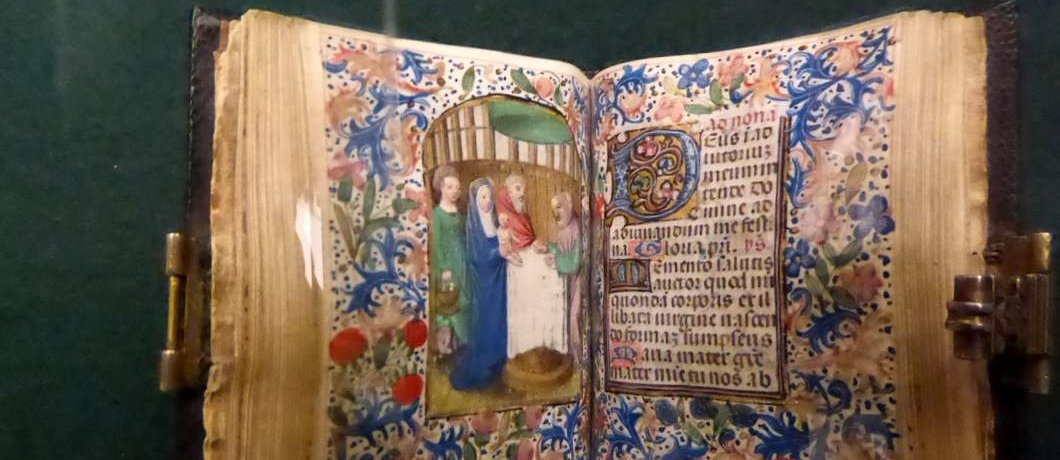 ad nona
Deus i ad
iutoriuz
meum in
tende Do
mine ad
adiuuandum me festi
na. Gloria pri. ps
Memento salutis
auctor quod nri
quonda corporis ex il
libata uirgine nascen
do formaz sumpseris
Maria mater gre
mater mie tu nos ab